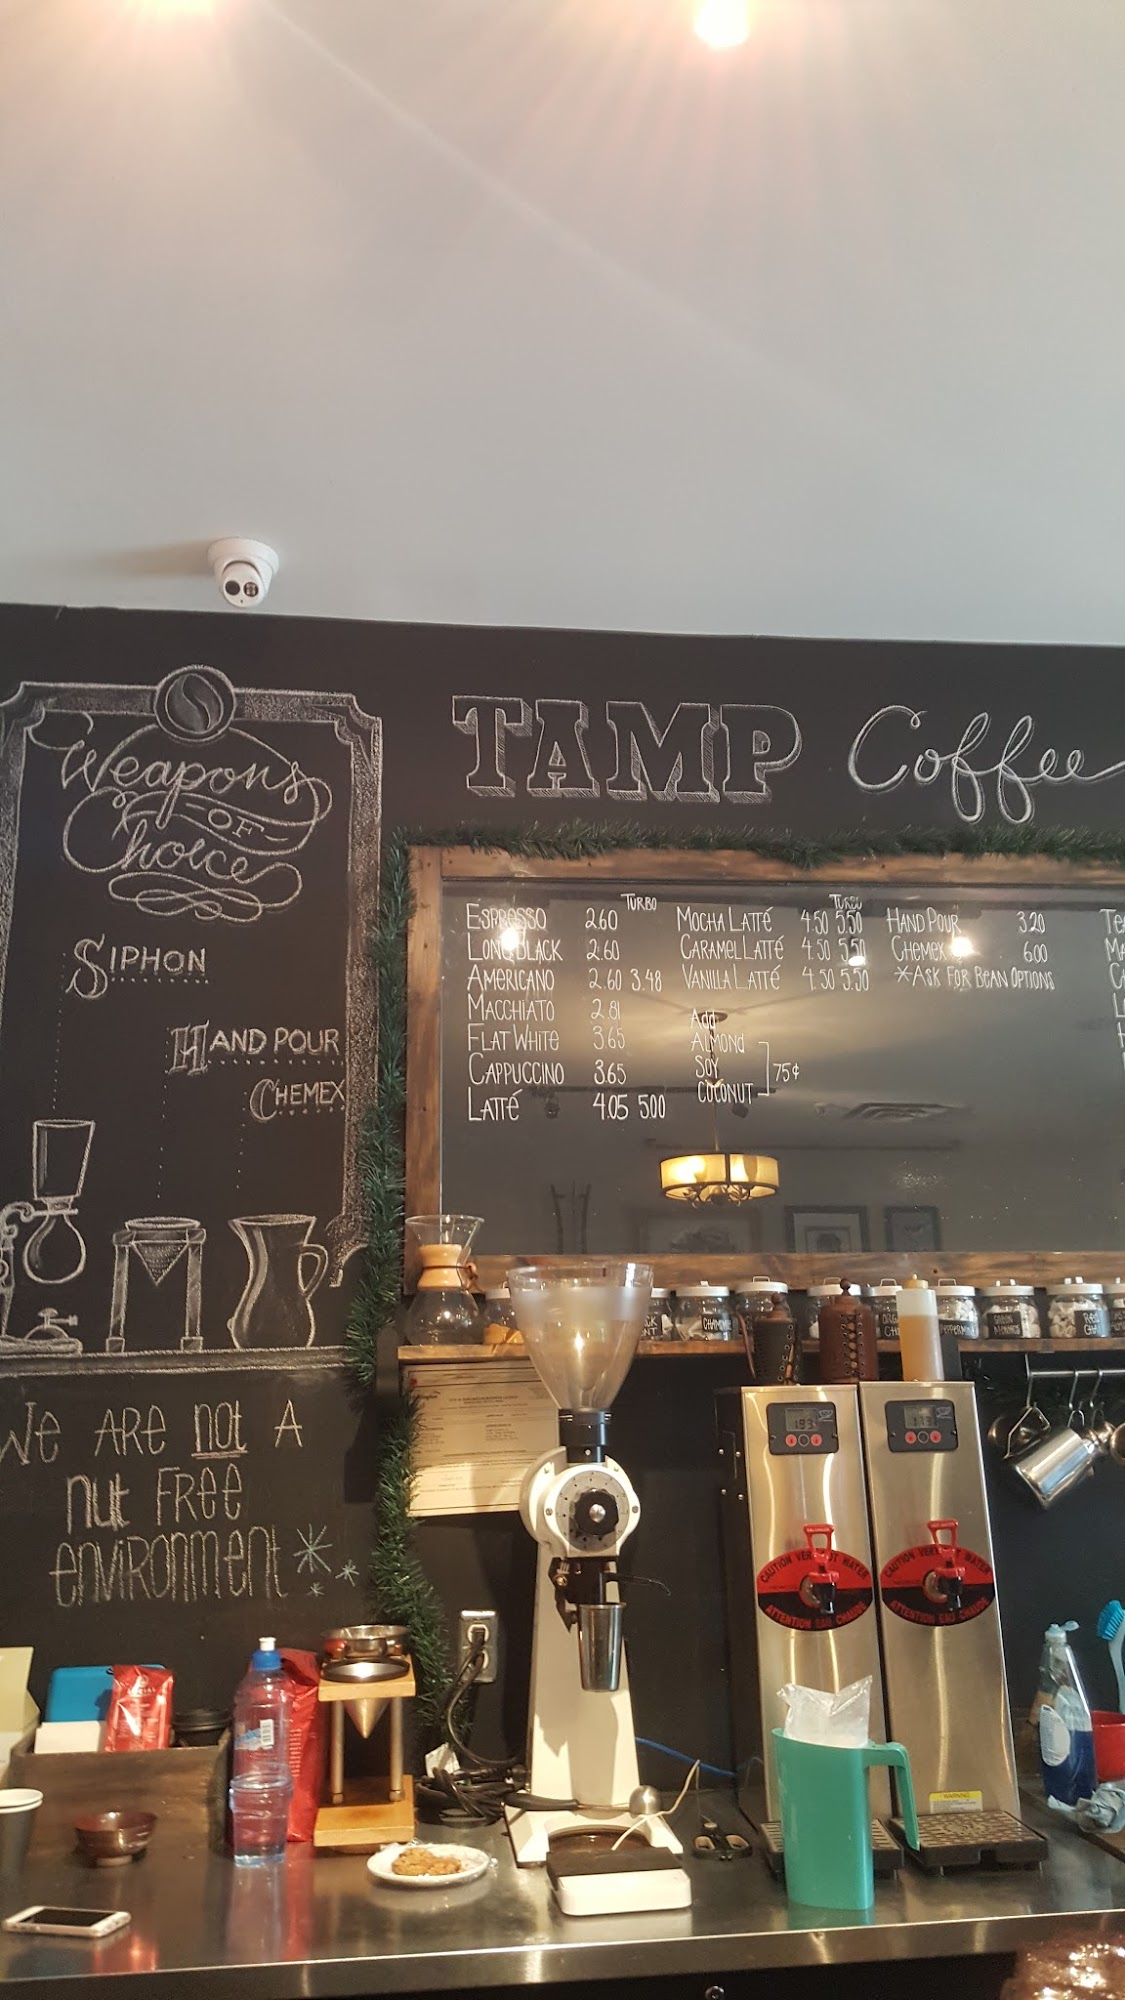 Weapons
OF
Choice
SIPHON
HAND POUR
CHEMEX
WE ARE not A
nut FREE
environment
TAMP Coffee
TURBO
ESPRESSO 2.60
LONG BLACK 2.60
AMERICANO 2.60 3.48
MACCHIATO 2.81
FLAT WHITE 3.65
CAPPUCCINO 3.65
LATTÉ 4.05 5.00
TURBO
MOCHA LATTÉ 4.50 5.50
CARAMEL LATTÉ 4.50 5.50
VANILLA LATTÉ 4.50 5.50
Add
ALMOND
SOY
COCONUT
75¢
HAND POUR 3.20
CHEMEX 6.00
*ASK FOR BEAN OPTIONS
PEPPERMINT
193
173
CAUTION VERY HOT WATER
ATTENTION EAU CHAUDE
CAUTION VERY HOT WATER
ATTENTION EAU CHAUDE
WARNING